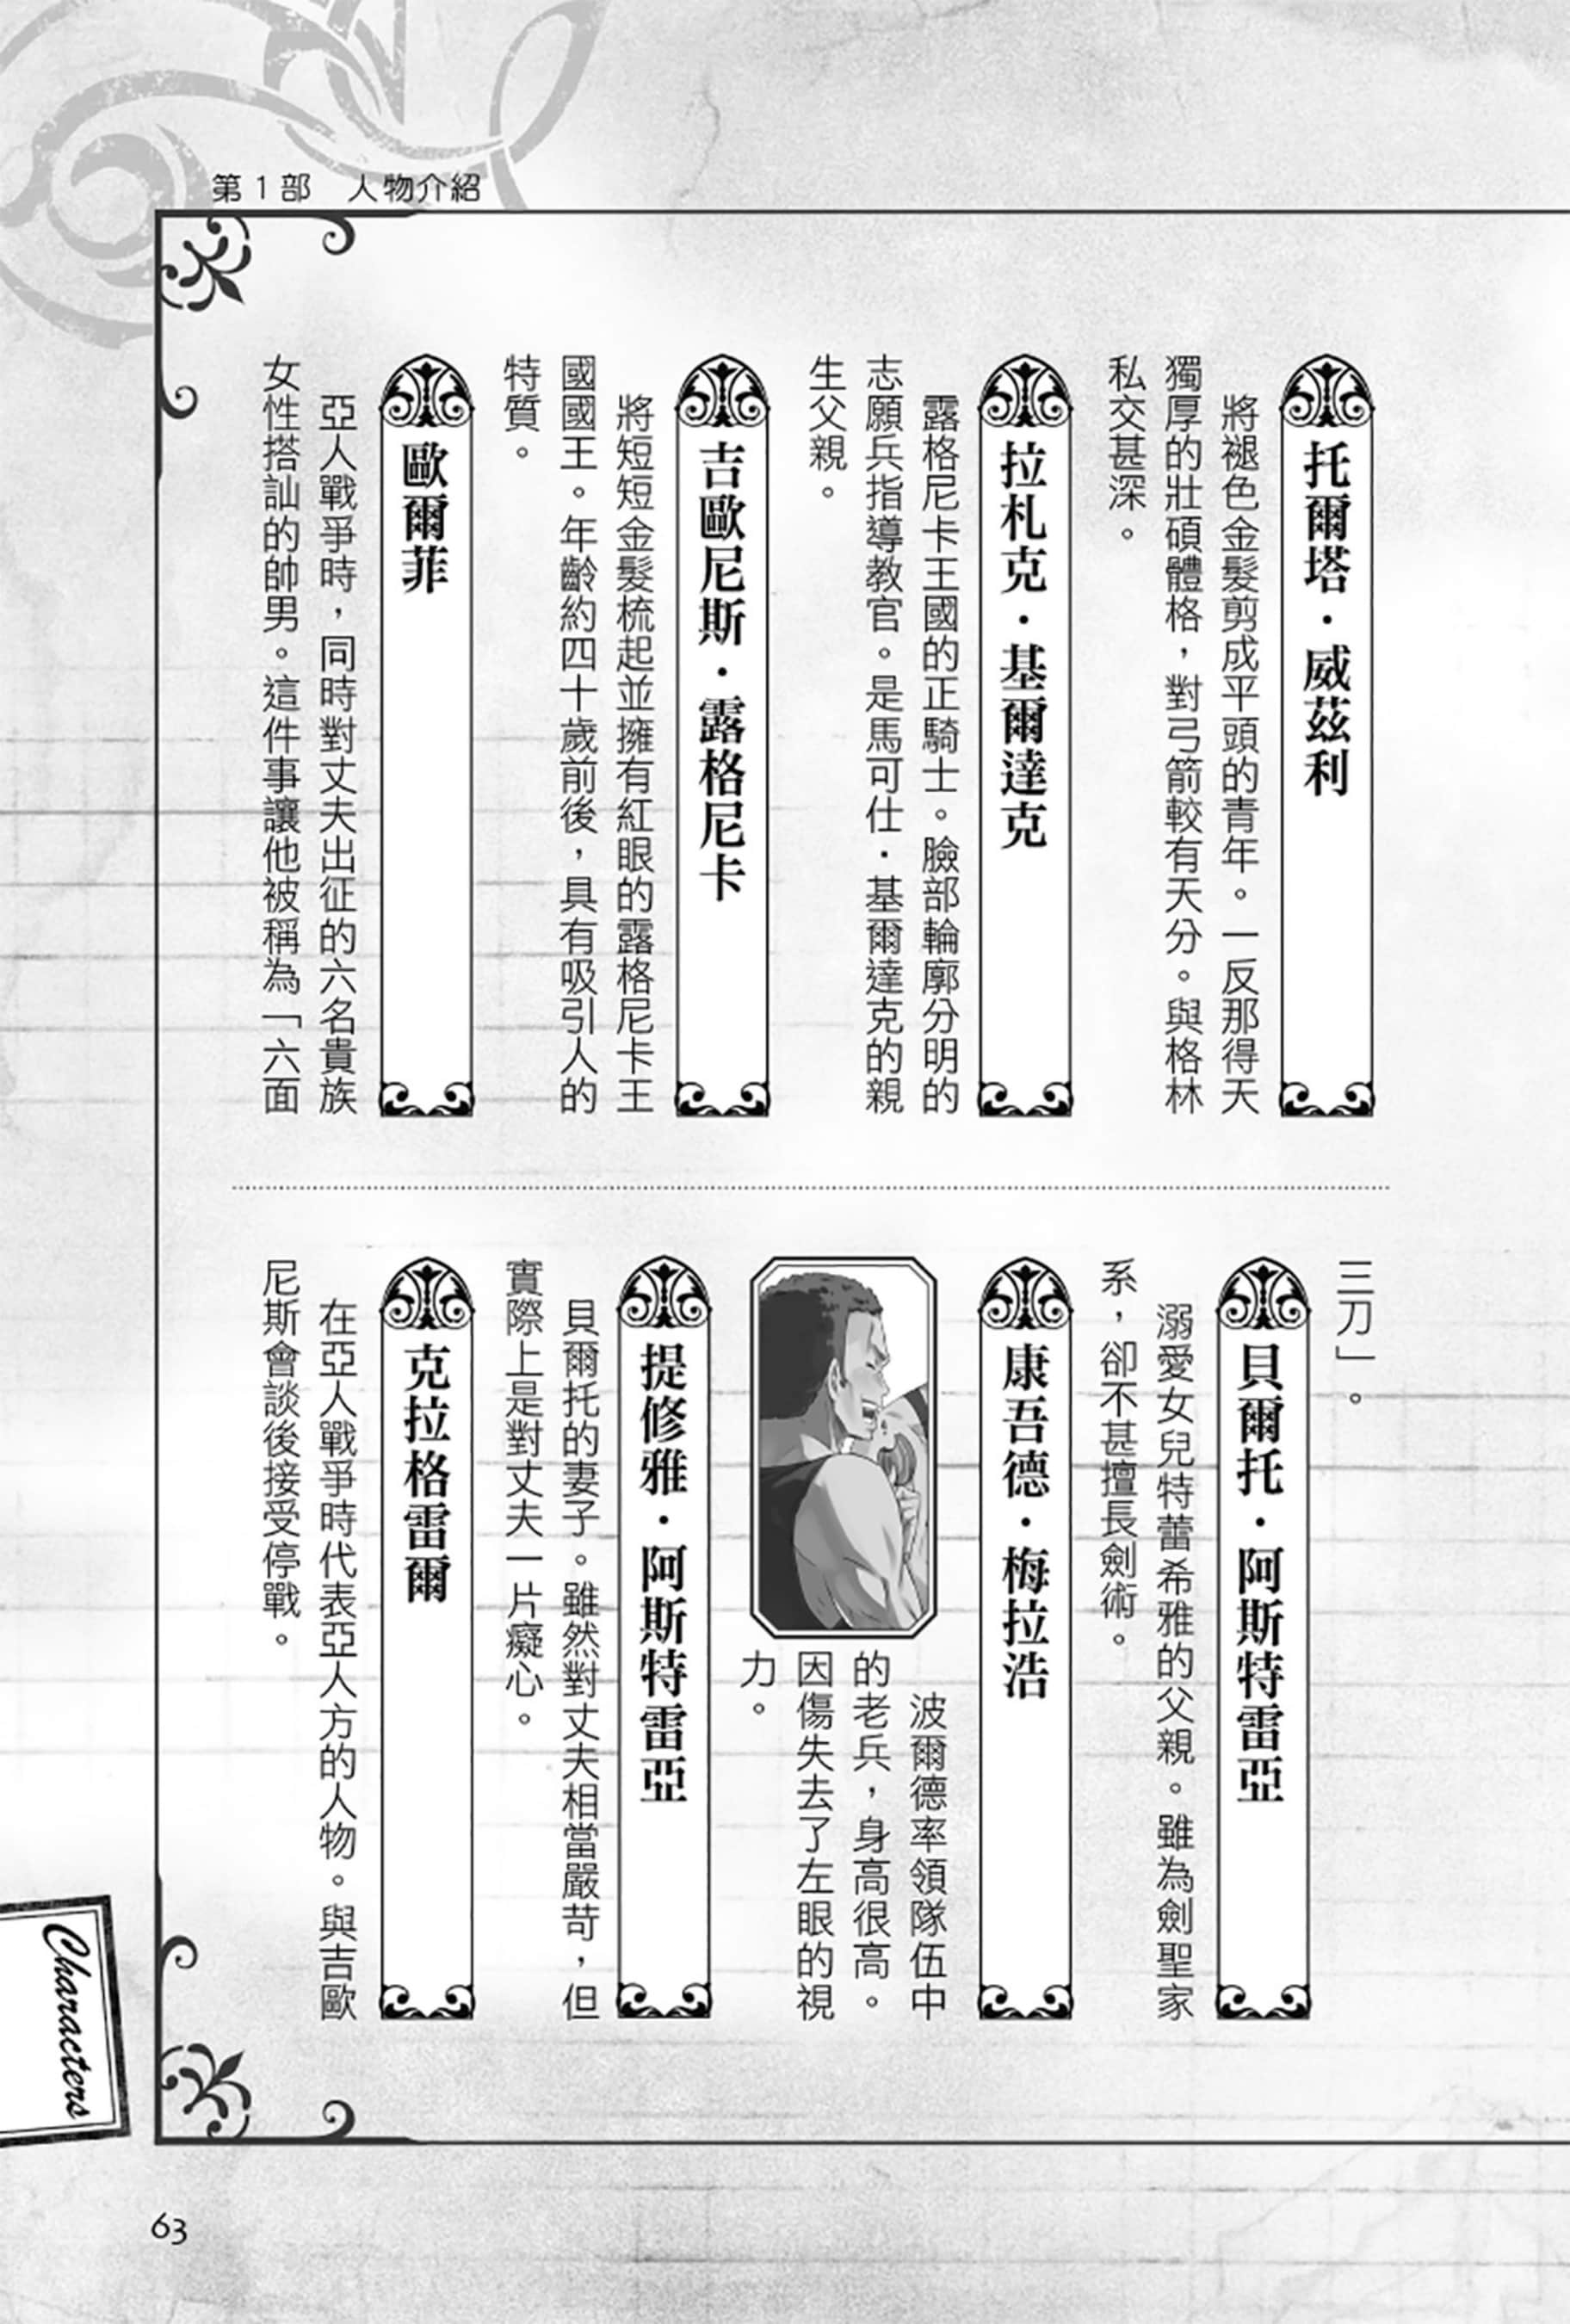 第1部　人物介紹
托爾塔・威茲利
將褪色金髮剪成平頭的青年。一反那得天
獨厚的壯碩體格，對弓箭較有天分。與格林
私交甚深。
拉札克・基爾達克
露格尼卡王國的正騎士。臉部輪廓分明的
志願兵指導教官。是馬可仕・基爾達克的親
生父親。
吉歐尼斯・露格尼卡
將短短金髮梳起並擁有紅眼的露格尼卡王
國國王。年齡約四十歲前後，具有吸引人的
特質。
歐爾菲
亞人戰爭時，同時對丈夫出征的六名貴族
女性搭訕的帥男。這件事讓他被稱為「六面
三刀」。
貝爾托・阿斯特雷亞
溺愛女兒特蕾希雅的父親。雖為劍聖家
系，卻不甚擅長劍術。
康吾德・梅拉浩
波爾德率領隊伍中
的老兵，身高很高。
因傷失去了左眼的視
力。
提修雅・阿斯特雷亞
貝爾托的妻子。雖然對丈夫相當嚴苛，但
實際上是對丈夫一片癡心。
克拉格雷爾
在亞人戰爭時代表亞人方的人物。與吉歐
尼斯會談後接受停戰。
Characters
63